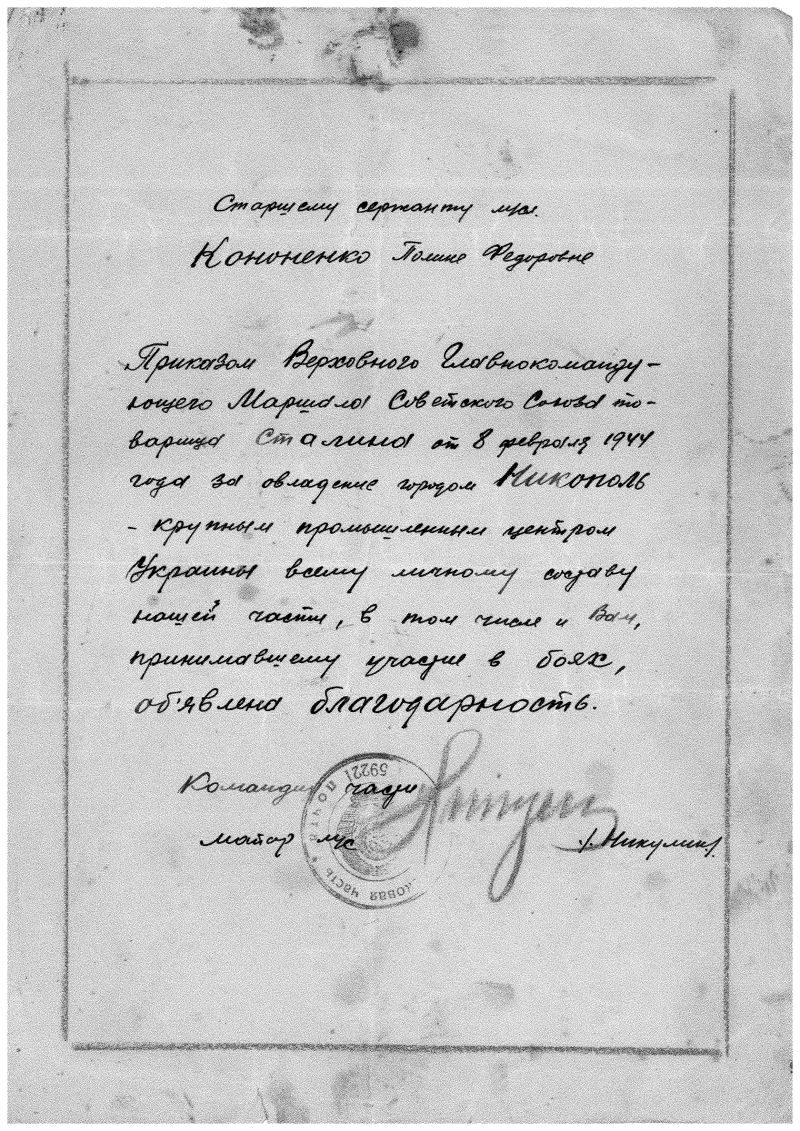 Старшему сержанту м/с.
Кононенко Полине Федоровне
Приказом Верховного Главнокоманду-
ющего Маршала Советского Союза то-
варища Сталина от 8 февраля 1944
года за овладение городом Никополь
- крупным промышленным центром
Украины всему личному составу
нашей части, в том числе и Вам,
принимавшему участие в боях,
об'явлена благодарность.
Командир части
майор м/с /Никулин/
ПОЧТА 5922
ЧАСТЬ